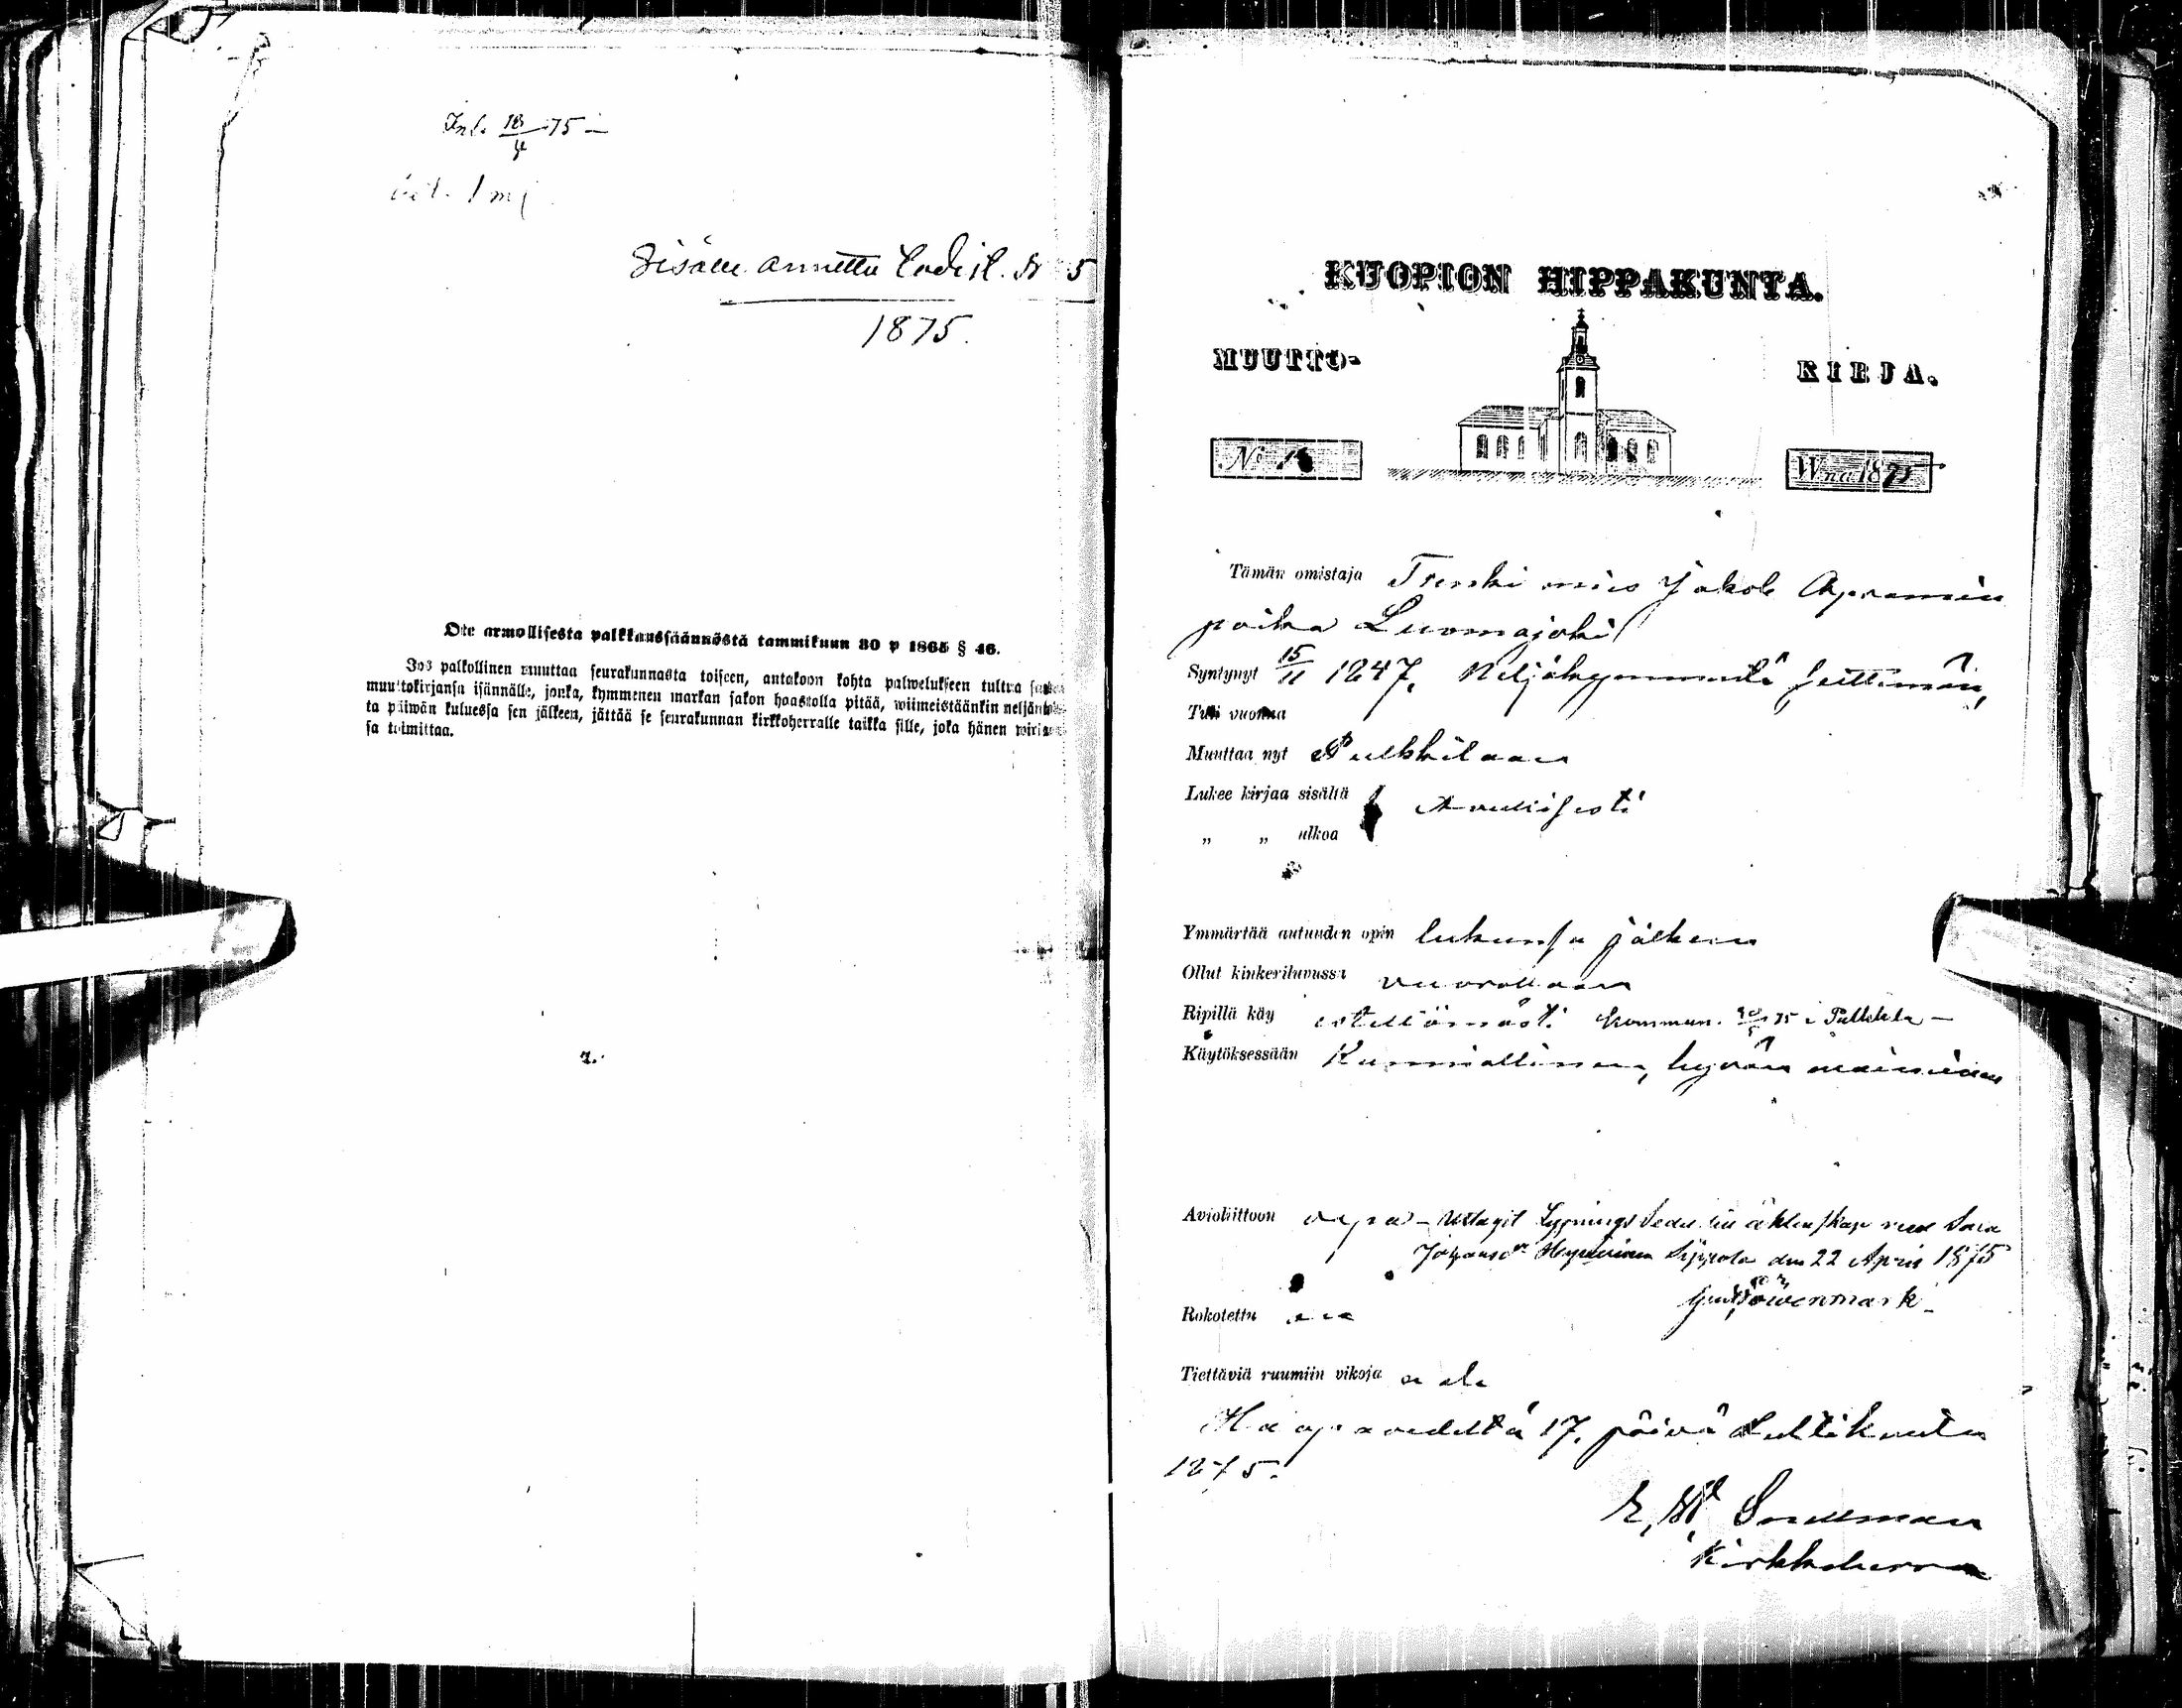 Inl. 18/4 75 –
Sisälle annettu Todist. N 5
1875.
Ote armollisesta palkkaussäännöstä tammikuun 30 p 1865 § 46.
Jos palkollinen muuttaa seurakunnasta toiseen, antakoon kohta palwelukseen tultua
muuttokirjansa isännälle, jonka, kymmenen markan sakon haastolla pitää, wiimeistäänkin neljäntoista
ta päiwän kuluessa sen jälkeen, jättää se seurakunnan kirkkoherralle taikka sille, joka hänen
sa toimittaa.
KUOPION HIPPAKUNTA.
MUUTTO- KIRJA.
No Wna 1875
Tämän omistaja Trenki mies Jakob Apramin
poika Luomajoki
Syntynyt 15/11 1847, Neljäkymmentä seittemän,
Tuli vuonna
Muuttaa nyt Pulkkilaan
Lukee kirjaa sisältä Awullisesti
„ „ ulkoa
Ymmärtää autuuden opin lukunsa jälkeen
Ollut kinkeriluvussa vuorollaan
Ripillä käy estellömästi Kommun. 75 i Pulkkila –
Käytöksessään Kunniallinen, hyvän maininen
Avioliittoon vapa – Uttagit Lysnings Sedel till äktenskap med Sara
Johansdr Heponinen Piippola den 22 April 1875
Löwenmark
Rokotettu on
Tiettäviä ruumiin vikoja ei ole
Haapavedeltä 17. päivä Huhtikuuta
1875.
E. W. Snellman
Kirkkoherra